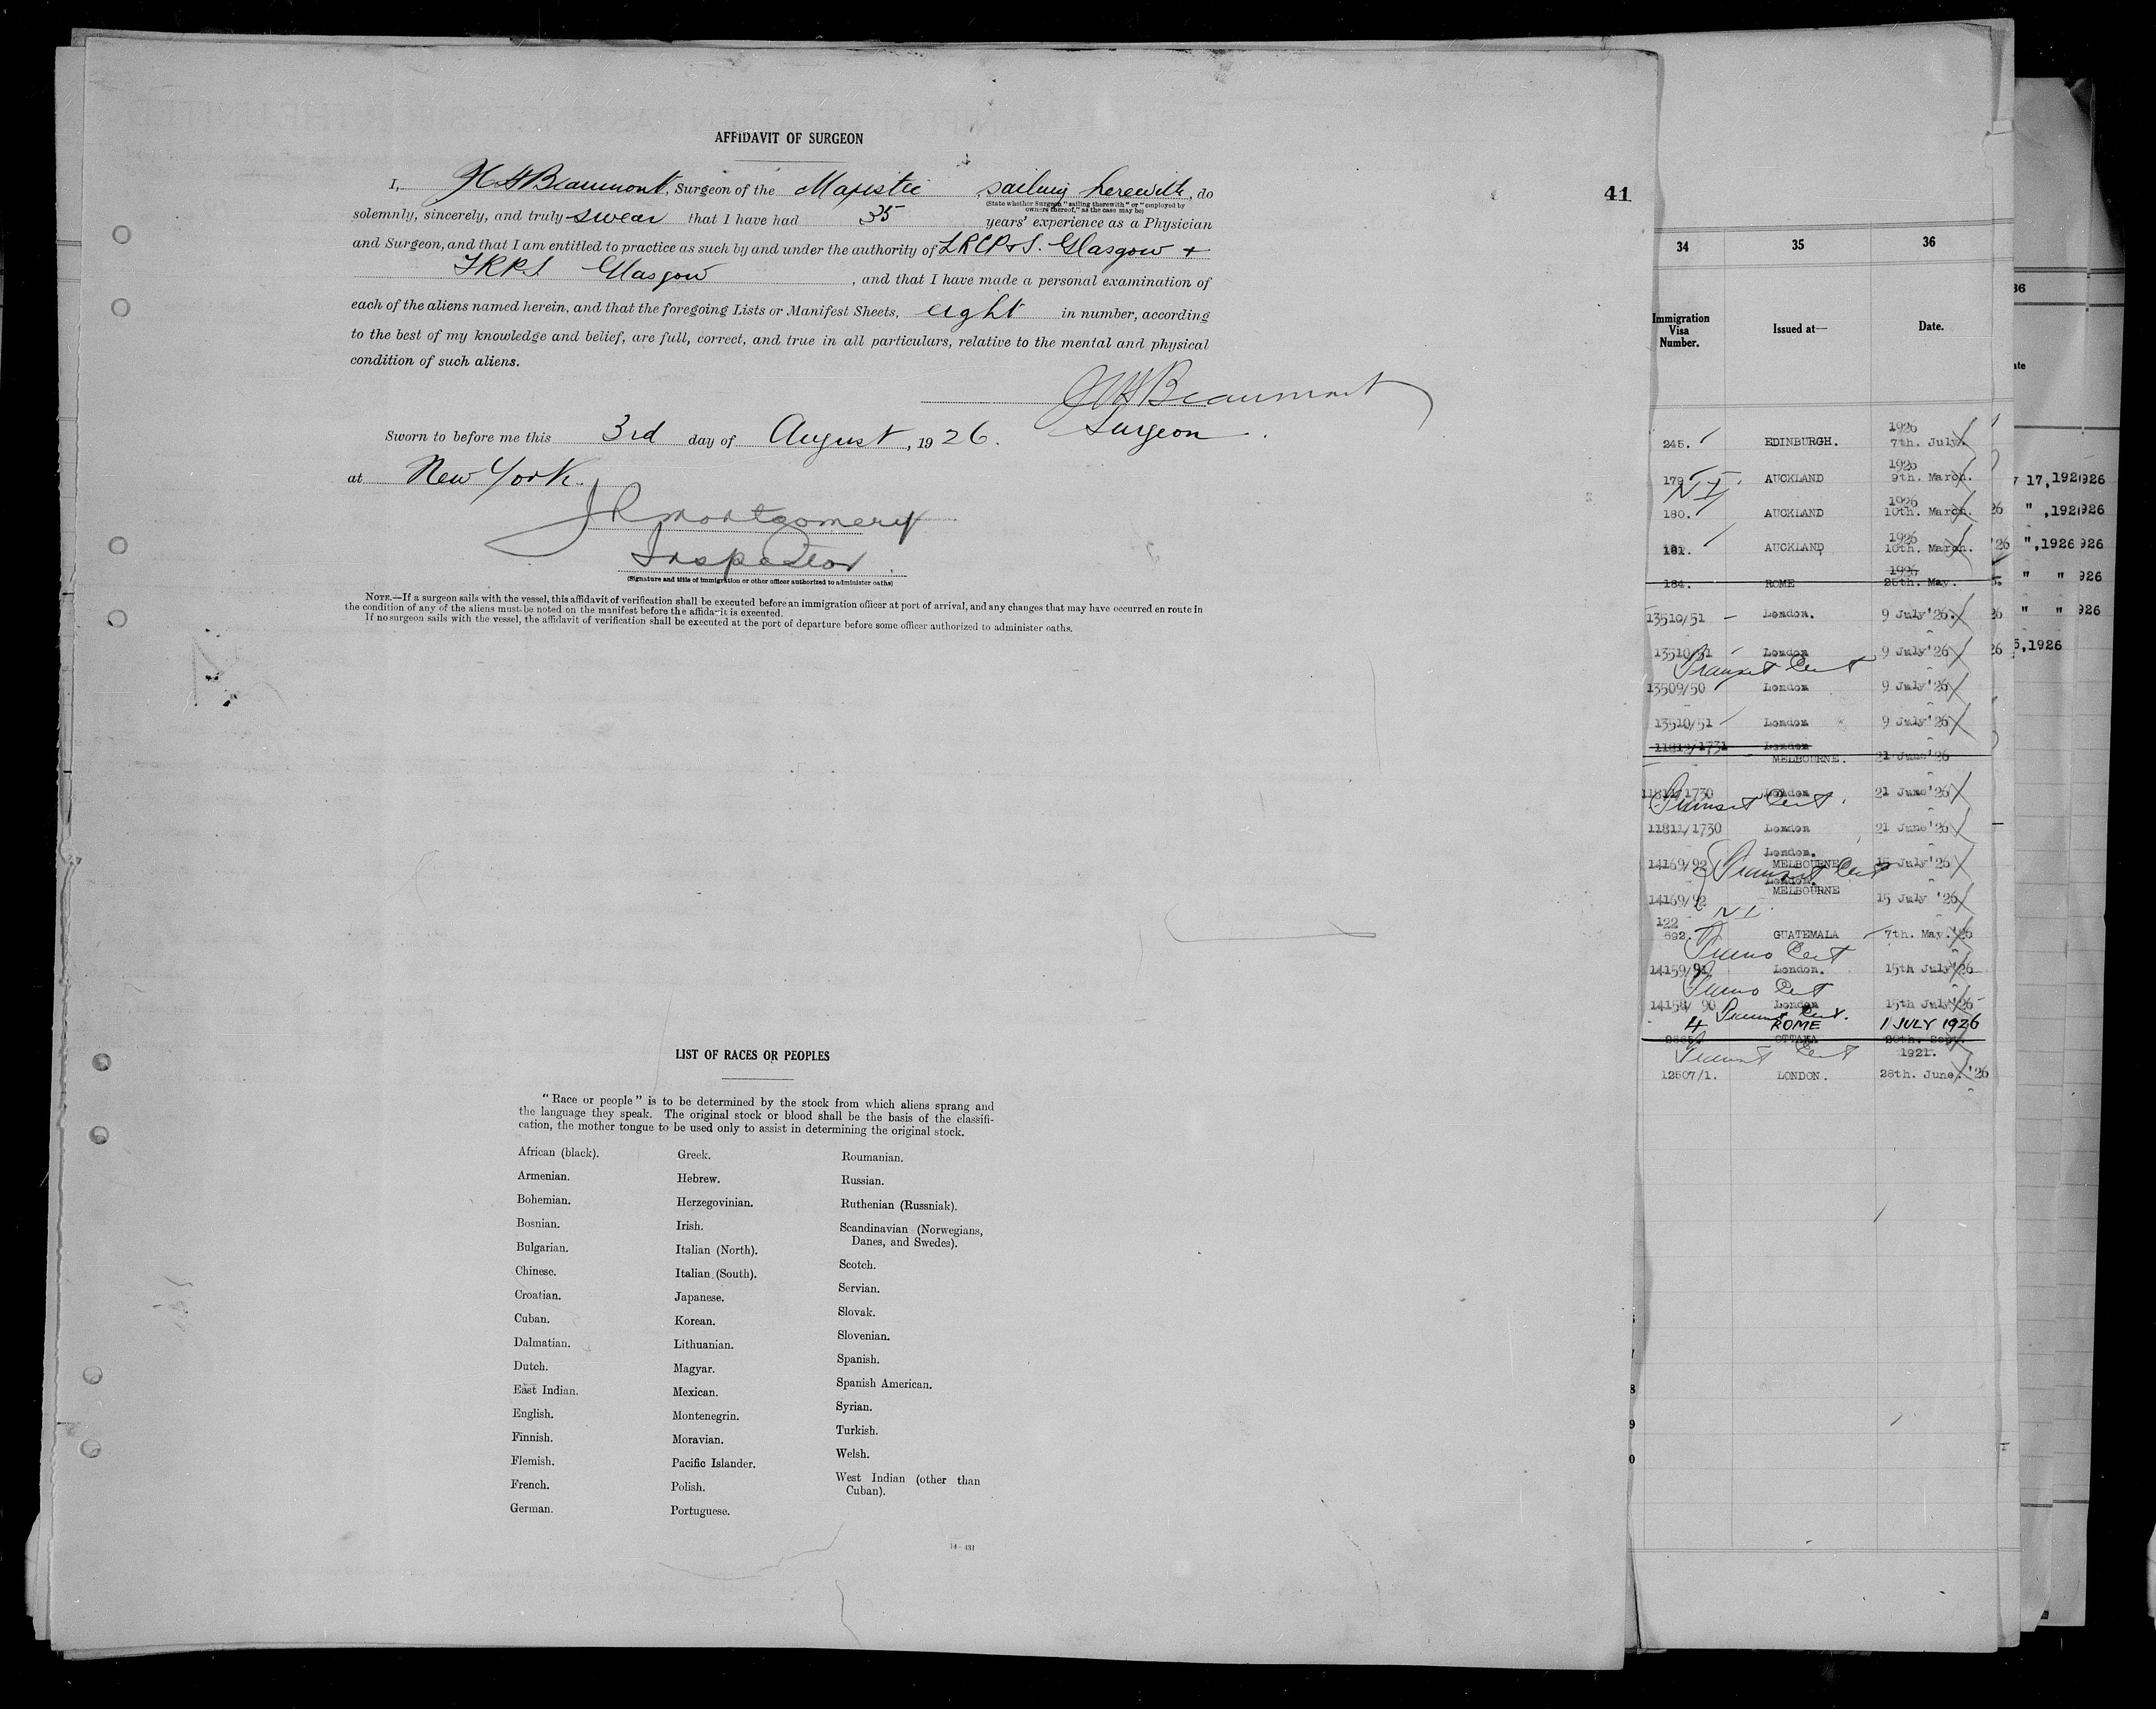 AFFIDAVIT OF SURGEON
I, Beaumont, Surgeon of the Majestic, sailing herewith, do
(State whether Surgeon "sailing therewith" or "employed by
owners thereof," as the case may be)
solemnly, sincerely, and truly swear that I have had 35 years' experience as a Physician
and Surgeon, and that I am entitled to practice as such by and under the authority of LRCP&S. Glasgow +
Glasgow, and that I have made a personal examination of
each of the aliens named herein, and that the foregoing Lists or Manifest Sheets, eight in number, according
to the best of my knowledge and belief, are full, correct, and true in all particulars, relative to the mental and physical
condition of such aliens.
Beaumont
Surgeon.
Sworn to before me this 3rd day of August, 1926.
at New York.
JR Montgomery
Inspector.
(Signature and title of immigration or other officer authorized to administer oaths)
NOTE.—If a surgeon sails with the vessel, this affidavit of verification shall be executed before an immigration officer at port of arrival, and any changes that may have occurred en route in
the condition of any of the aliens must be noted on the manifest before the affidavit is executed.
If no surgeon sails with the vessel, the affidavit of verification shall be executed at the port of departure before some officer authorized to administer oaths.
LIST OF RACES OR PEOPLES
"Race or people" is to be determined by the stock from which aliens sprang and
the language they speak. The original stock or blood shall be the basis of the classifi-
cation, the mother tongue to be used only to assist in determining the original stock.
African (black).
Armenian.
Bohemian.
Bosnian.
Bulgarian.
Chinese.
Croatian.
Cuban.
Dalmatian.
Dutch.
East Indian.
English.
Finnish.
Flemish.
French.
German.
Greek.
Hebrew.
Herzegovinian.
Irish.
Italian (North).
Italian (South).
Japanese.
Korean.
Lithuanian.
Magyar.
Mexican.
Montenegrin.
Moravian.
Pacific Islander.
Polish.
Portuguese.
Roumanian.
Russian.
Ruthenian (Russniak).
Scandinavian (Norwegians,
Danes, and Swedes).
Scotch.
Servian.
Slovak.
Slovenian.
Spanish.
Spanish American.
Syrian.
Turkish.
Welsh.
West Indian (other than
Cuban).
14-431
41
34 35 36
Immigration Visa Number. Issued at— Date.
1926
245. EDINBURGH. 7th. July.
1926
179 AUCKLAND 9th. March.
N I
1926
180. AUCKLAND 10th. March.
1926
181. AUCKLAND 10th. March.
1926
184. ROME 25th. May.
13510/51 London. 9 July '26.
13510/51 London 9 July '26
Transit Cert
13509/50 London 9 July '26
13510/51 London 9 July '26
11812/1731 London
MELBOURNE. 21 June '26
11811/1730 London 21 June '26
Transit Cert.
11811/1730 London 21 June '26
London.
14169/92 MELBOURNE 15 July '26
Transit Cert
London.
MELBOURNE
14169/92 15 July '26
N I.
122
692. GUATEMALA 7th. May. '26
Cert
14159/91 London. 15th July '26
Cert
14158/90 London 15th July '26
Cert.
4 ROME 1 JULY 1926
OTTAWA 20th. Sep.
Transit Cert 1921.
12507/1. LONDON. 28th. June. '26
17, 1926
" , 1926
", 1926
" "
" "
5, 1926